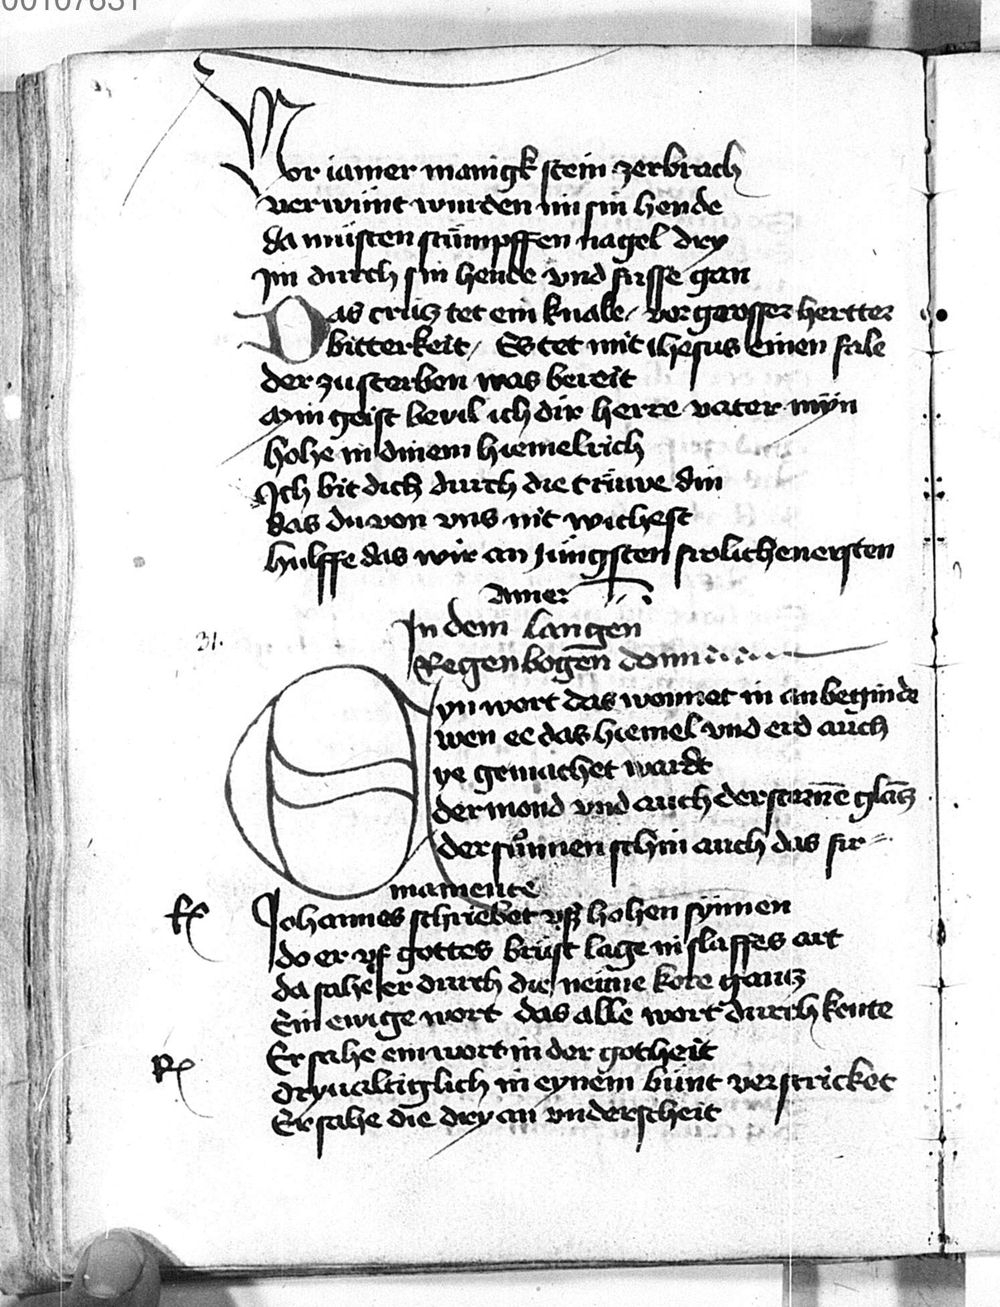 00107631
Vor iamer manigk stein zerbrach
verwunt wurden im sin hende
da musten stumpffen nagel dry
Jm durch sin hende vnd fusse gan
Das crutz tet ein knale / vor grosser hertter
bitterkeit / Es tet mit ihesus einen fale
der zu sterben was bereit
Min geist bevil ich dir herre vater myn
hohe in dinem hiemelrich
Jch bit dich durch die truwe din
das du von vns nit wichest
hulffe das wir an jungsten frolichen ersten
Amen
31.
Jn dem langen
Regenbogen donn
Eyn wort das wonnet in anbeginde
wen ee das hiemel vnd erd auch
ye gemachet wardt
der mond vnd auch der sternē glātz
der sunnen schin auch das fir
mamente
Johannes schriebet vß hohen synnen
do er vf gottes brust lage in slaffes art
da sahe er durch die neune kore gantz
Ein ewige wort das alle wort durch kente
Er sahe ein wort in der gotheit
dryualtiglich in eynem bunt verstricket
Er sahe die dry an vnderscheit